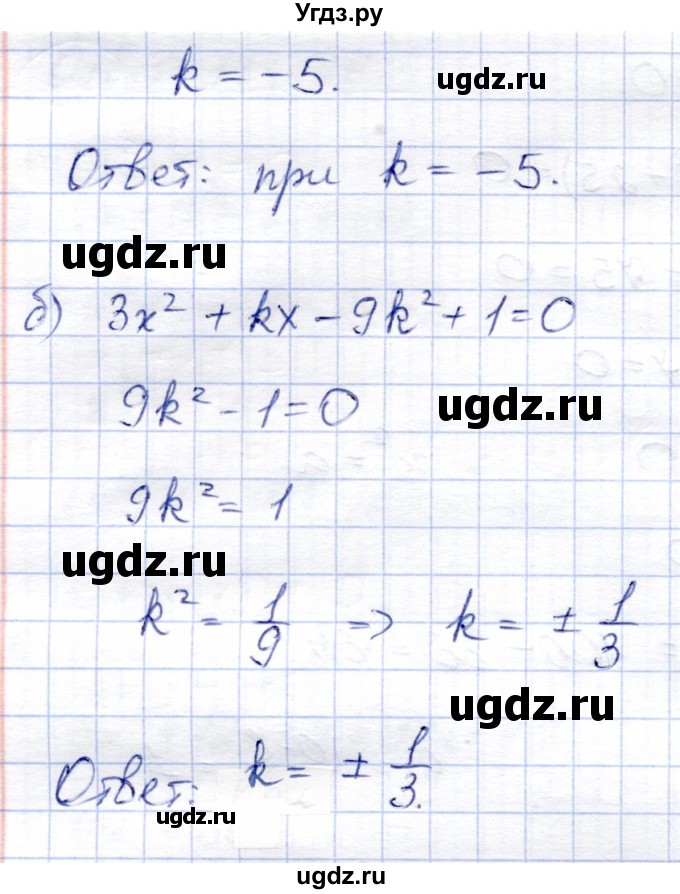 Угдз.ру
k = -5.
ugdz.ru
Ответ: при k = -5.
ugdz.ru
б) 3x² + kx - 9k² + 1 = 0
9k² - 1 = 0
ugdz.ru
9k² = 1
ugdz.ru
k² = 1/9 => k = ± 1/3
ugdz.ru
Ответ: k = ± 1/3.
ugdz.ru
ugdz.ru